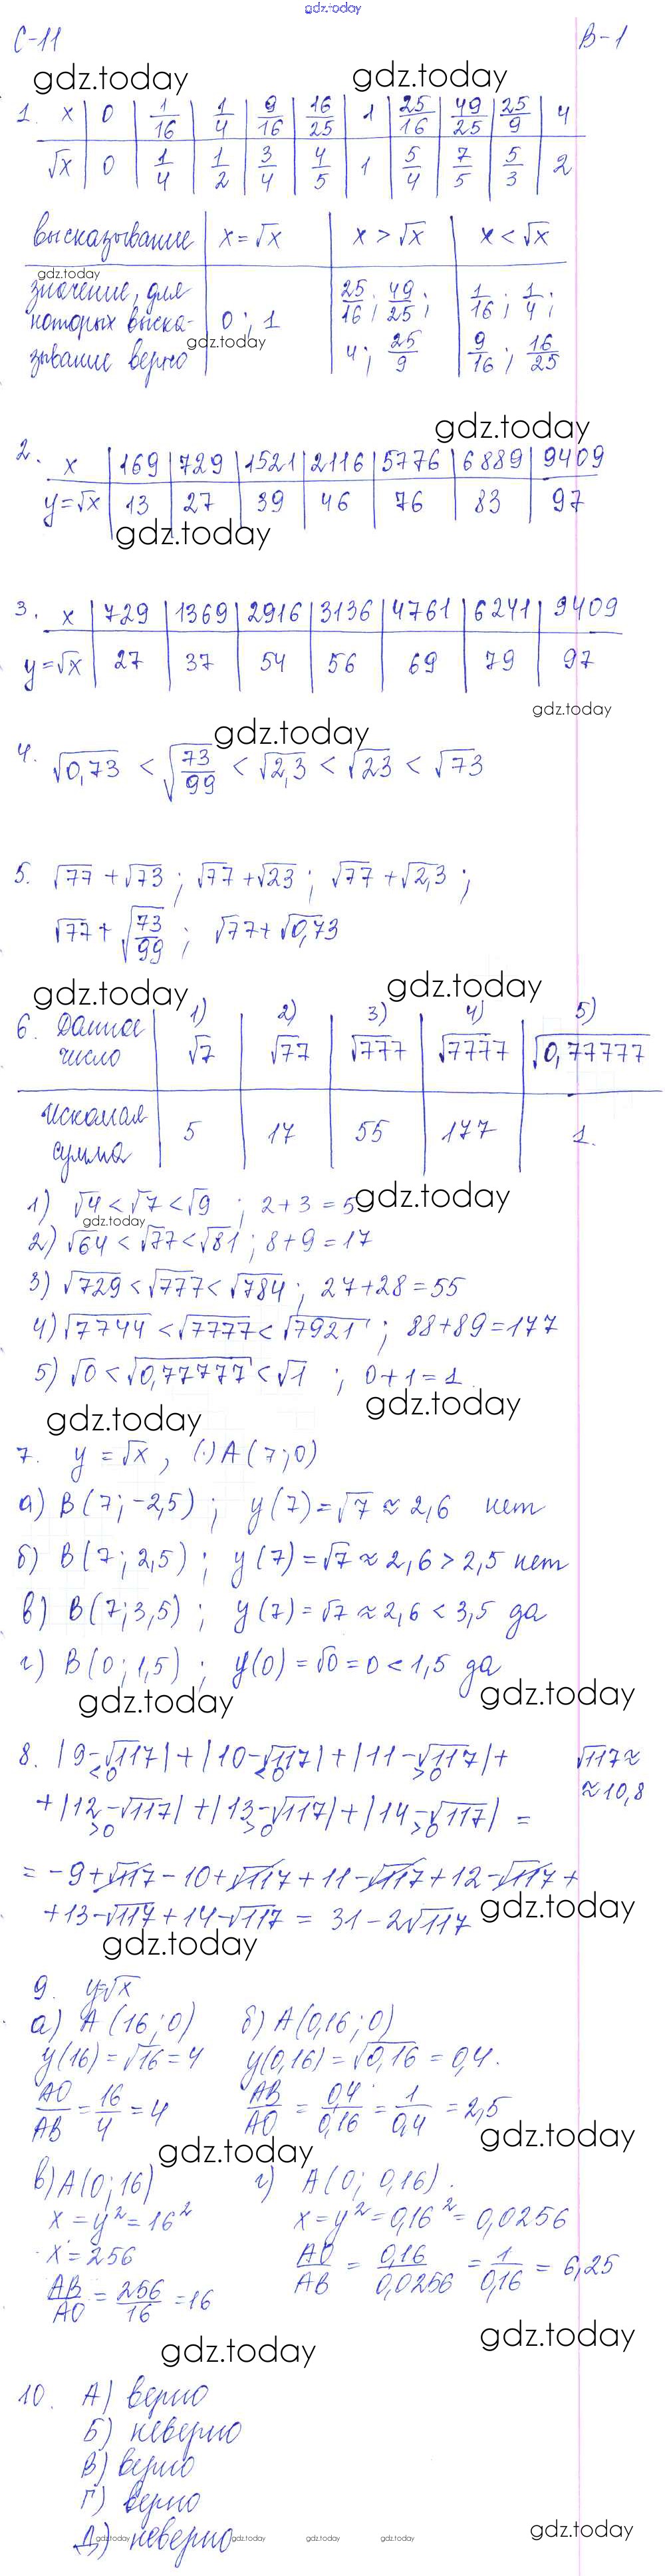 gdz.today
С-11 В-1
gdz.today gdz.today
1. x | 0 | 1/16 | 1/4 | 9/16 | 16/25 | 1 | 25/16 | 49/25 | 25/9 | 4
√x | 0 | 1/4 | 1/2 | 3/4 | 4/5 | 1 | 5/4 | 7/5 | 5/3 | 2
высказывание | x=√x | x>√x | x<√x
gdz.today
значение, для | 25/16; 49/25; | 1/16; 1/4;
которых выска- | 0; 1
gdz.today
зывание верно | 4; 25/9 | 9/16; 16/25
gdz.today
2. x | 169 | 729 | 1521 | 2116 | 5776 | 6889 | 9409
y=√x | 13 | 27 | 39 | 46 | 76 | 83 | 97
gdz.today
3. x | 729 | 1369 | 2916 | 3136 | 4761 | 6241 | 9409
y=√x | 27 | 37 | 54 | 56 | 69 | 79 | 97
gdz.today
gdz.today
4. √0,73 < √73/99 < √2,3 < √23 < √73
5. √77+√73; √77+√23; √77+√2,3;
√77+√73/99; √77+√0,73
gdz.today gdz.today
1) 2) 3) 4) 5)
6. Данное
число | √7 | √77 | √777 | √7777 | √0,77777
Искомая
сумма | 5 | 17 | 55 | 177 | 1.
1) √4<√7<√9; 2+3=5
gdz.today
gdz.today
2) √64<√77<√81; 8+9=17
3) √729<√777<√784; 27+28=55
4) √7744<√7777<√7921; 88+89=177
5) √0<√0,77777<√1; 0+1=1.
gdz.today gdz.today
7. y=√x, (·)A(7;0)
а) B(7;-2,5); y(7)=√7≈2,6 нет
б) B(7;2,5); y(7)=√7≈2,6>2,5 нет
в) B(7;3,5); y(7)=√7≈2,6<3,5 да
г) B(0;1,5); y(0)=√0=0<1,5 да
gdz.today gdz.today
8. |9-√117|+|10-√117|+|11-√117|+ √117≈
<0 <0 >0 ≈10,8
+|12-√117|+|13-√117|+|14-√117|=
>0 >0 >0
=-9+√117-10+√117+11-√117+12-√117+
+13-√117+14-√117=31-2√117
gdz.today
gdz.today
9. y=√x
а) A(16;0) б) A(0,16;0)
y(16)=√16=4 y(0,16)=√0,16=0,4.
AO/AB=16/4=4 AB/AO=0,4/0,16=1/0,4=2,5
gdz.today gdz.today
в) A(0;16) г) A(0;0,16).
x=y²=16² x=y²=0,16²=0,0256
x=256 AO/AB=0,16/0,0256=1/0,16=6,25
AB/AO=256/16=16
gdz.today gdz.today
10. А) верно
Б) неверно
В) верно
Г) верно
Д) неверно
gdz.today gdz.today gdz.today gdz.today gdz.today